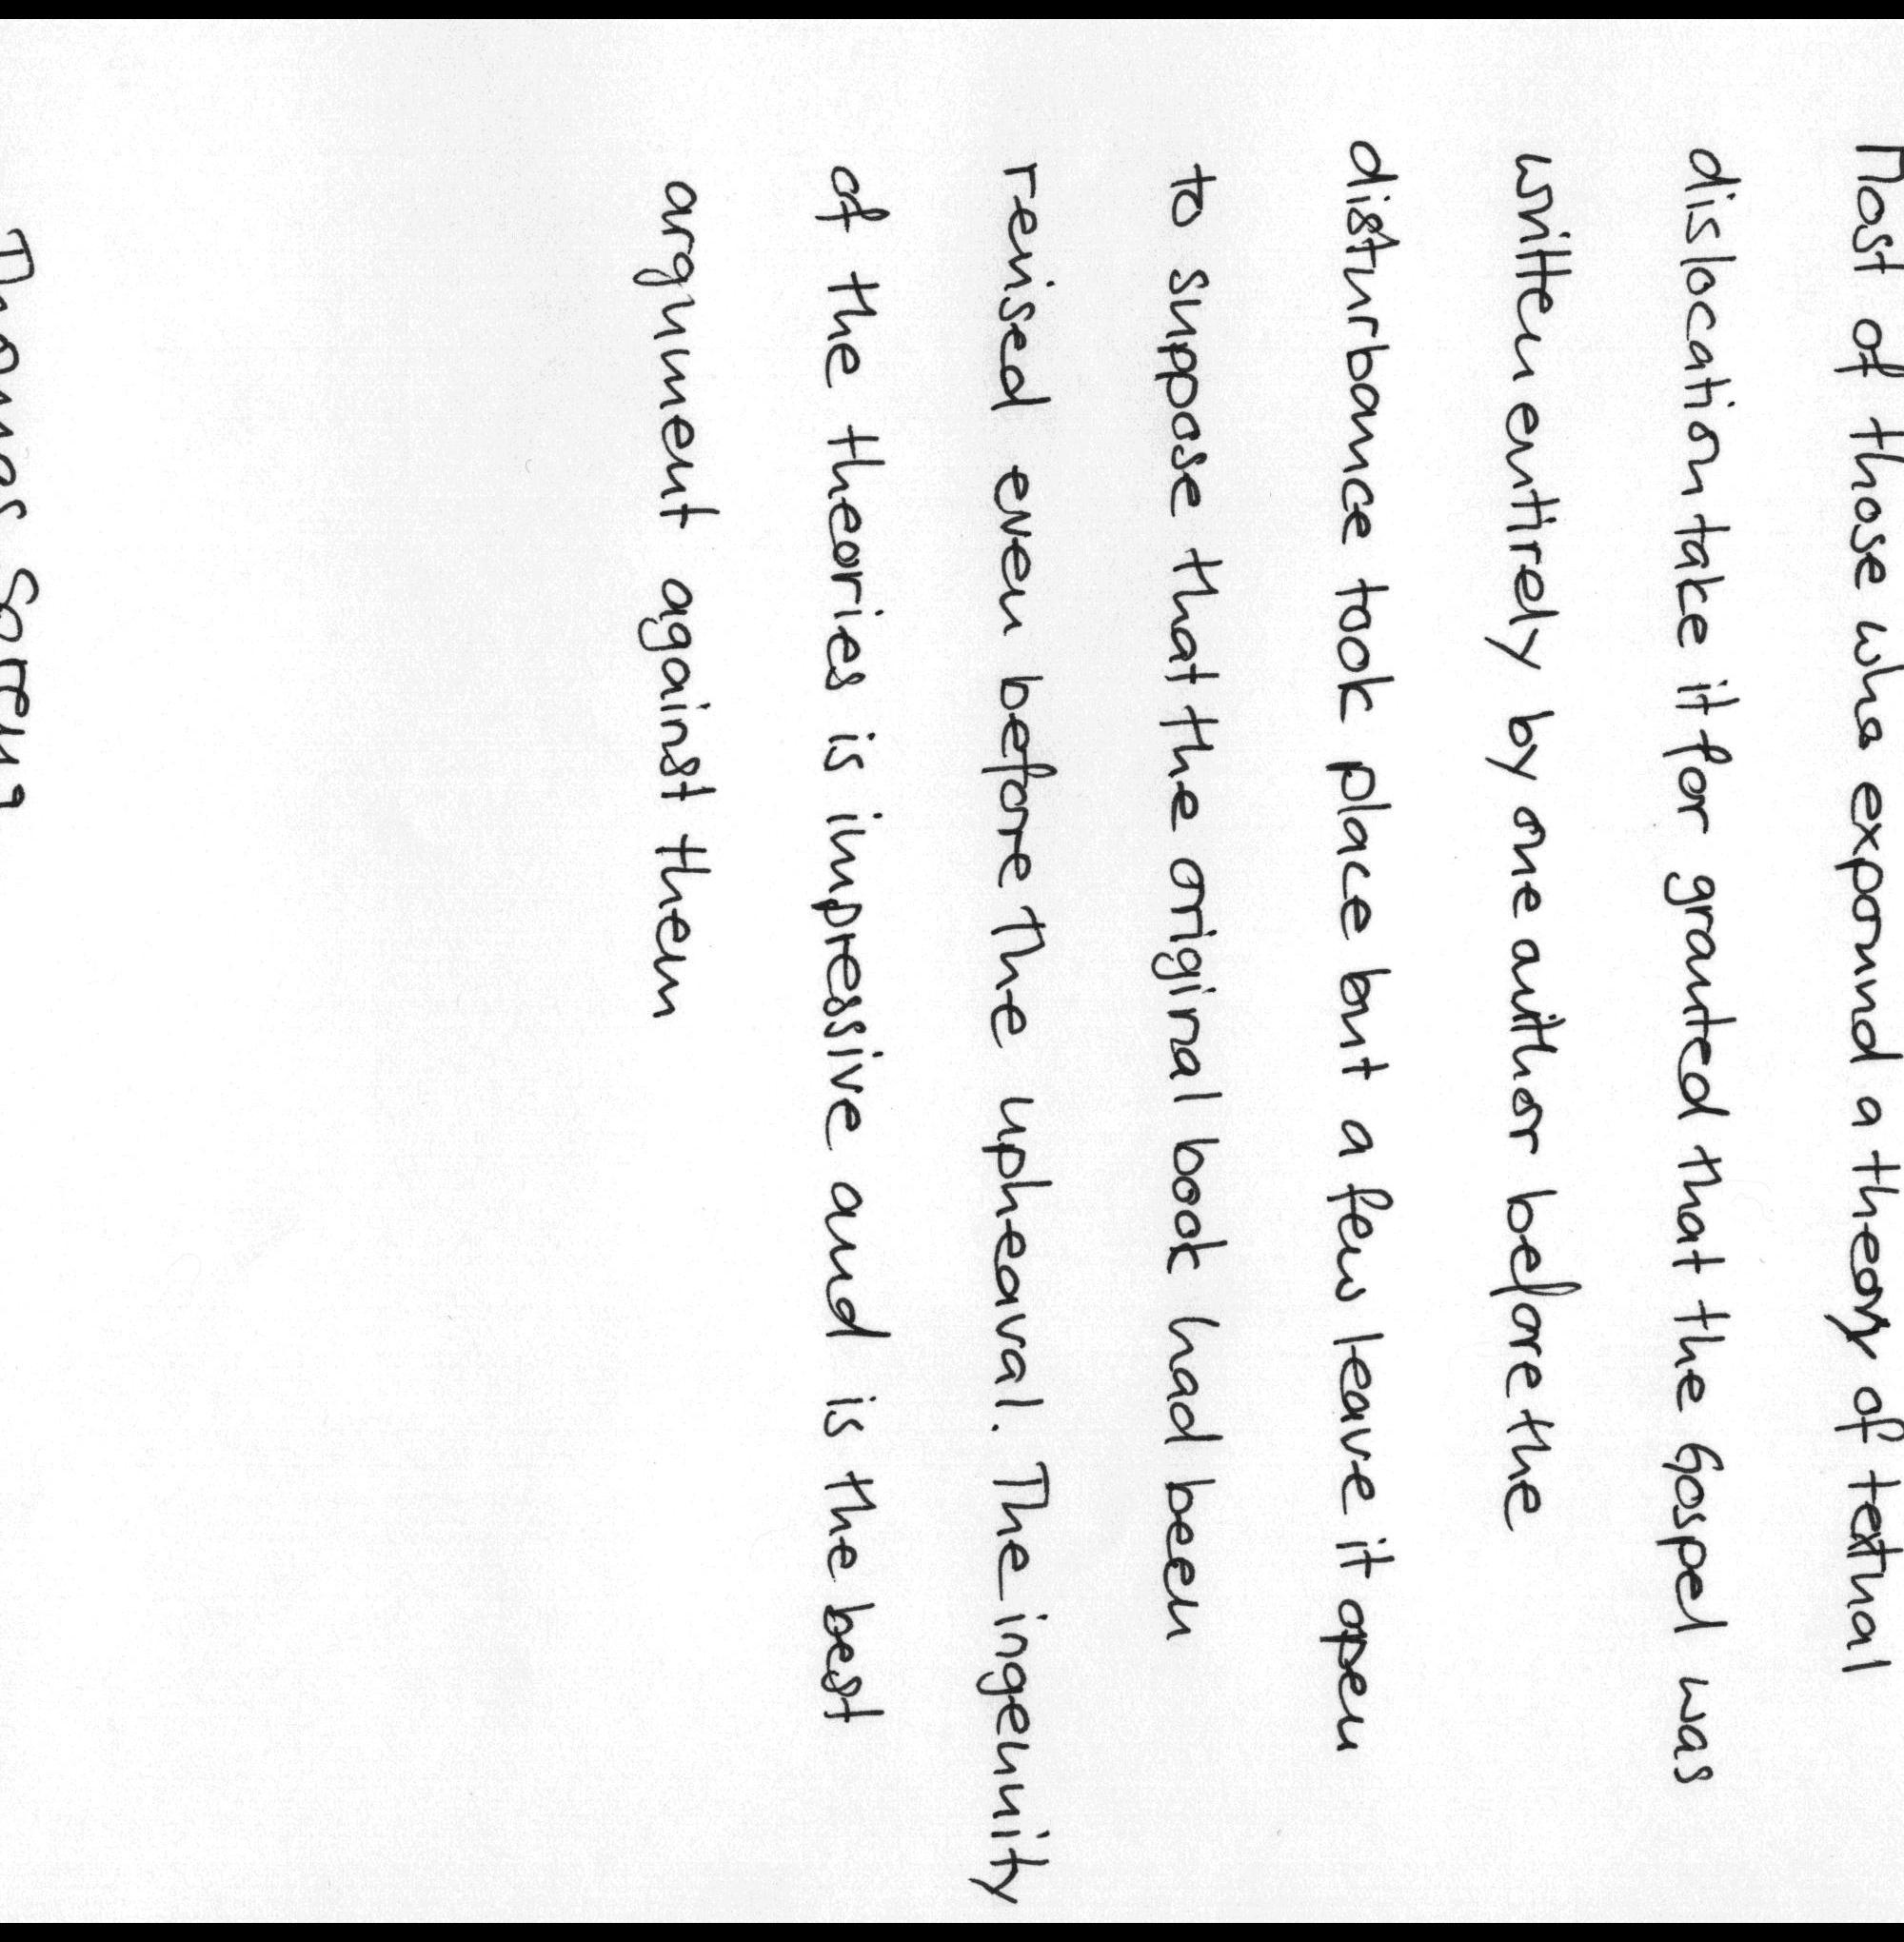 Most of those who expound a theory of textual
dislocation take it for granted that the Gospel was
written entirely by one author before the
disturbance took place but a few leave it open
to suppose that the original book had been
revised even before the upheaval. The ingenuity
of the theories is impressive and is the best
argument against them
Thomas